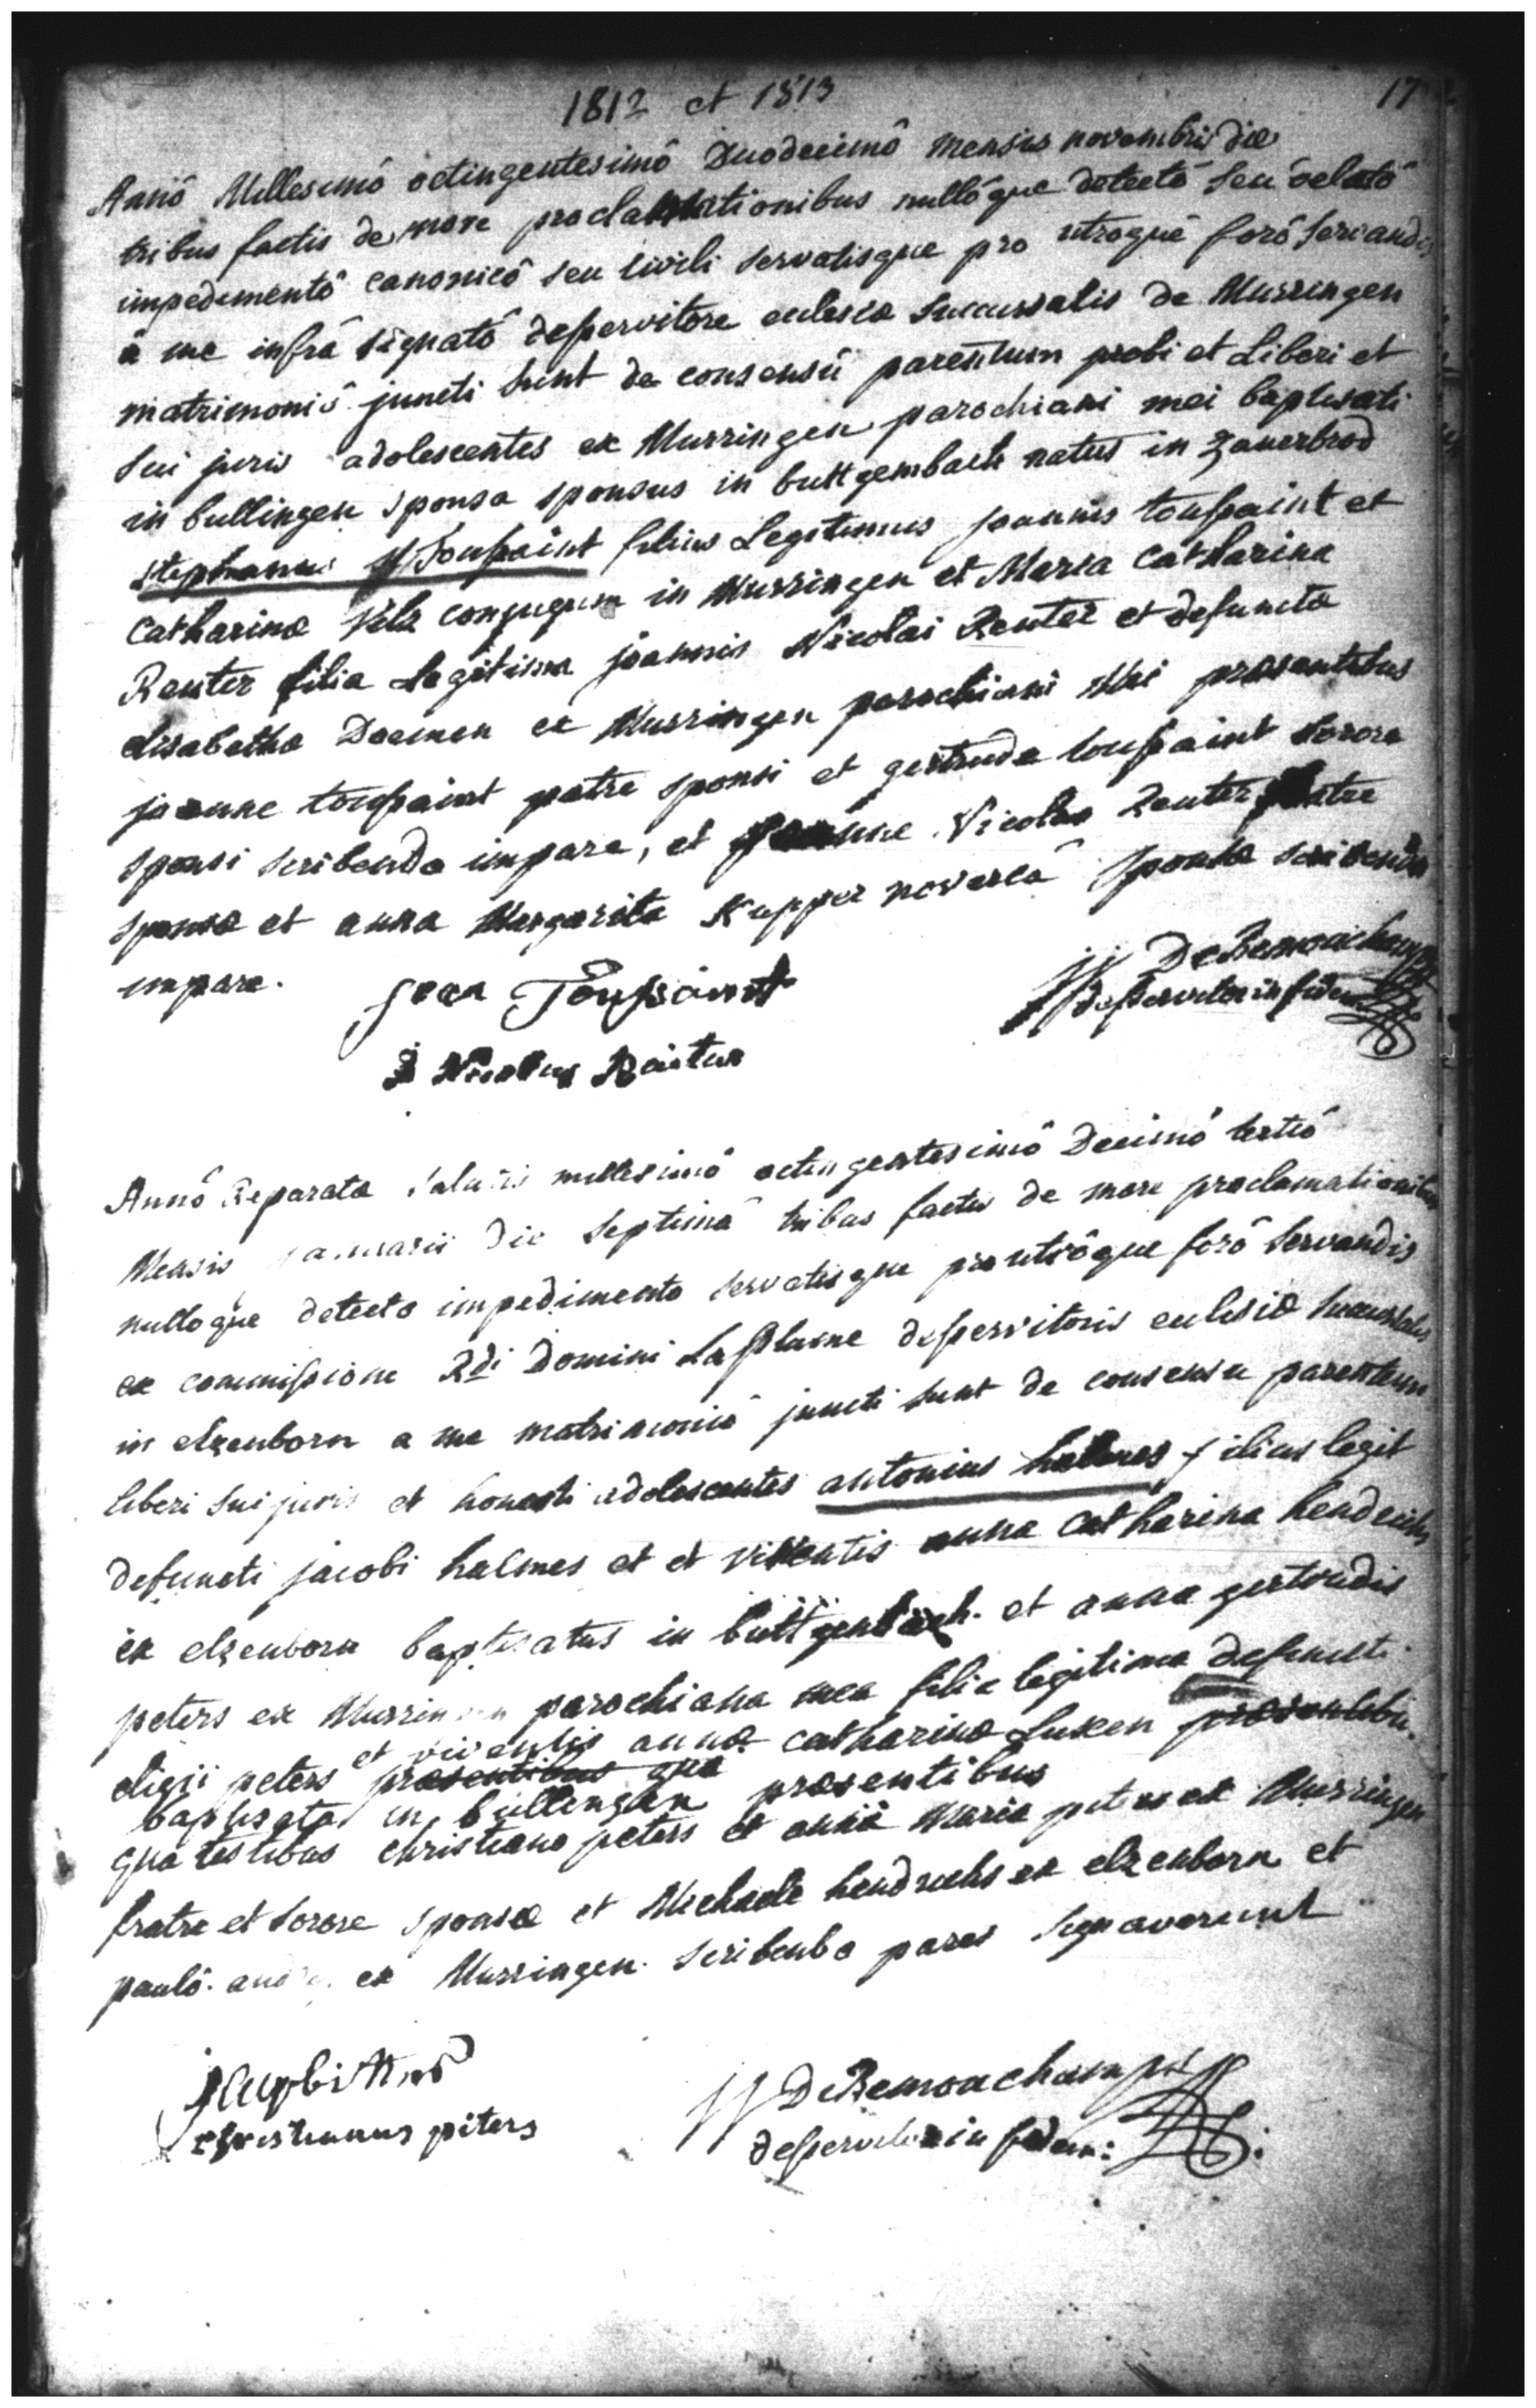 1812 et 1813
17
Annô Millesimô octingentesimô Duodecimô mensis novembris die
tribus factis de more proclamationibus nullôque detectô seu velatô
impedimentô canonicô seu civili servatisque pro utroque forô servandis
à me infrâ signatô desservitore eclesiæ succursalis de Murringen
matrimoniô juncti sunt de consensû parentum probi et Liberi et
sui juris adolescentes ex Murringen parochiani mei baptisati
in bullingen sponsa sponsus in buttgembach natus in Zauerbrod
stephanus Toussaint filius Legitimus joannis toussaint et
Catharinæ Velz conjugum in Murringen et Maria Catharina
Reuter filia Legitima joannis Nicolai Reuter et defunctæ
elisabethæ Doemen ex Murringen parochiani Mei præsentibus
joanne toussaint patre sponsi et gertrude toussaint sorore
sponsi scribendo impare, et joanne Nicolao Reuter patre
sponsæ et anna Margarita Kupper novercâ sponsæ scribendo
impare.
jean Toussaint
jj DeRemouchamps
desservitor in fidem
J Nicolus Räiter
Annô Reparatæ salutis millesimô octingentesimô Decimô tertiô
Mensis januarii die septimâ tribus factis de more proclamationibus
nulloque detecto impedimento servatisque pro utrôque forô servandis
ex commissione Rdi Domini LaPlume desservitoris eclesiæ succursalis
in elzenborn a me matrimoniô juncti sunt de consensu parentum
liberi sui juris et honesti adolescentes antonius halmes filius legit
defuncti jacobi halmes et et viventis annæ Catharina hendrichs
ex elzenborn baptisatus in buttgenbach. et anna gertrudis
peters ex Murringen parochiana mea filia legitima defuncti
eligii peters et viventis annæ catharinæ Luxen præsentibus
præsentibus qua
baptisata in bullengen præsentibus
qua testibus christiano peters et annâ Maria peters ex Murringen
fratre et sorore sponsæ et Michaele hendrichs ex elzenborn et
paulô ex Murringen. scribendo pares signaverunt
christianus piters
jj DeRemouchamps
desservitor in fidem: